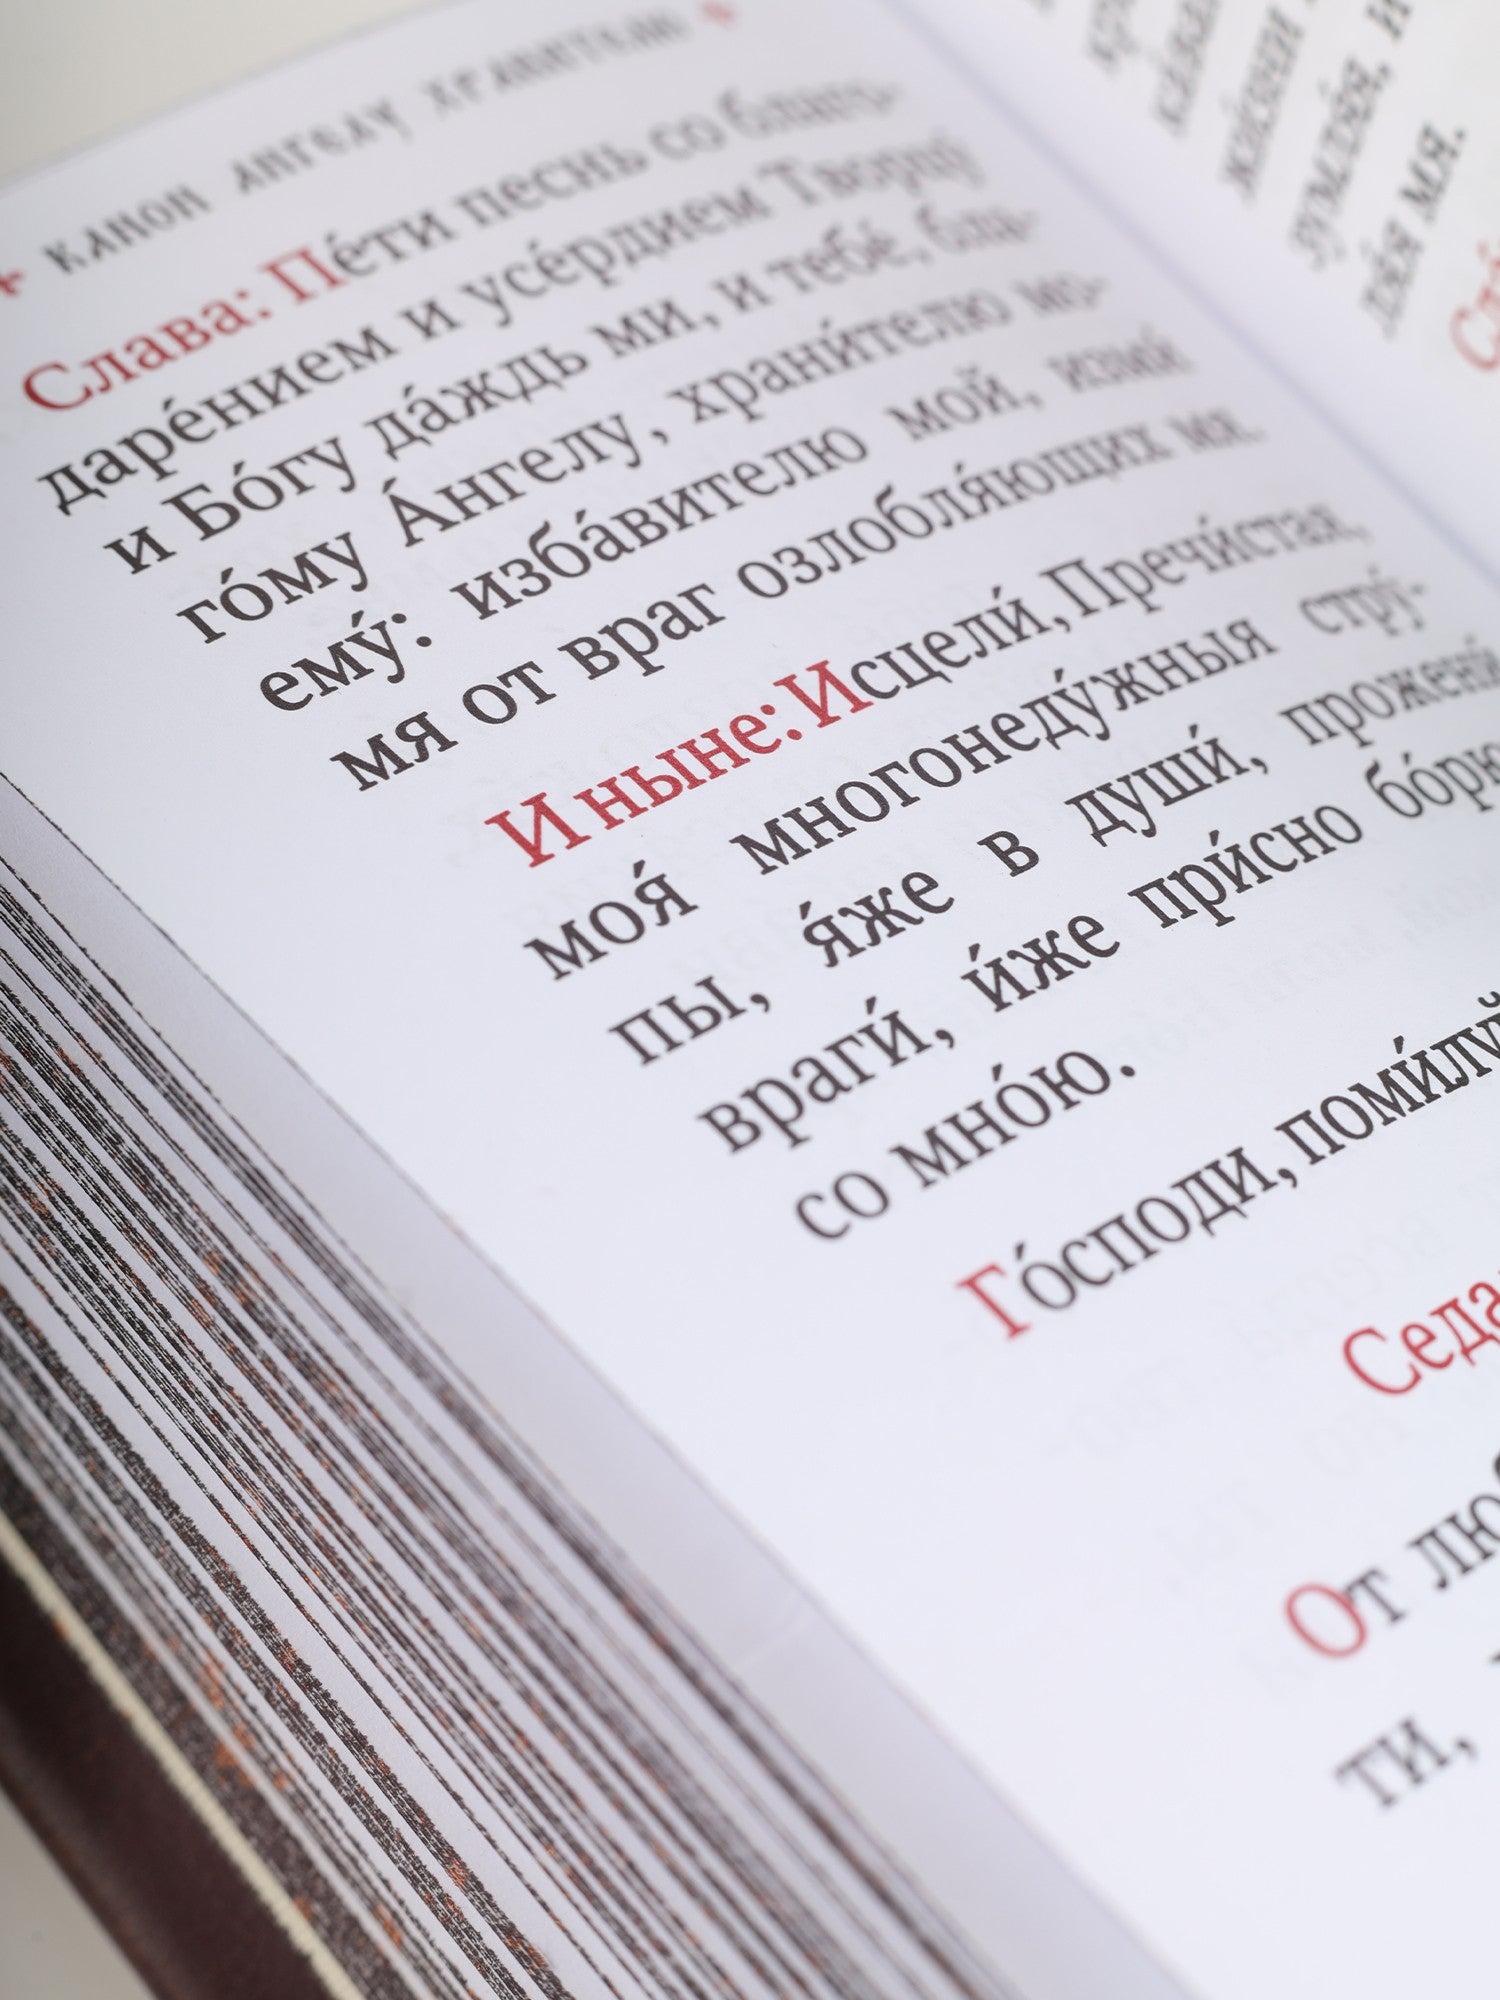 КАНОН АНГЕЛУ ХРАНИТЕЛЮ
Слава: Пе́ти песнь со благо-
даре́нием и усе́рдием Творцу́
и Бо́гу да́ждь ми, и тебе́, бла-
го́му А́нгелу, храни́телю мо-
ему́: изба́вителю мой, изми́
мя от враг озлобля́ющих мя.
И ныне: Исцели́, Пречи́стая,
моя́ многонеду́жныя стру́-
пы, я́же в души́, прожени́
враги́, и́же при́сно бо́рю
со мно́ю.
Го́споди, поми́луй
Седа
От лю
ти,
жи́зни
зумля́я, и
ля́я мя.